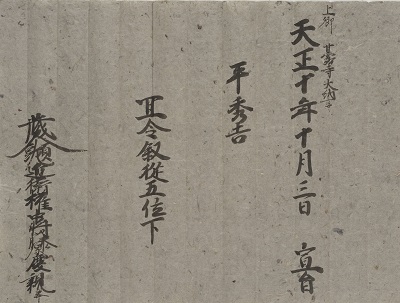 上卿 甘露寺大納言
天正十年十月三日 宣旨
平秀吉
宜令叙從五位下
蔵人頭左近衛権中将藤原慶親奉